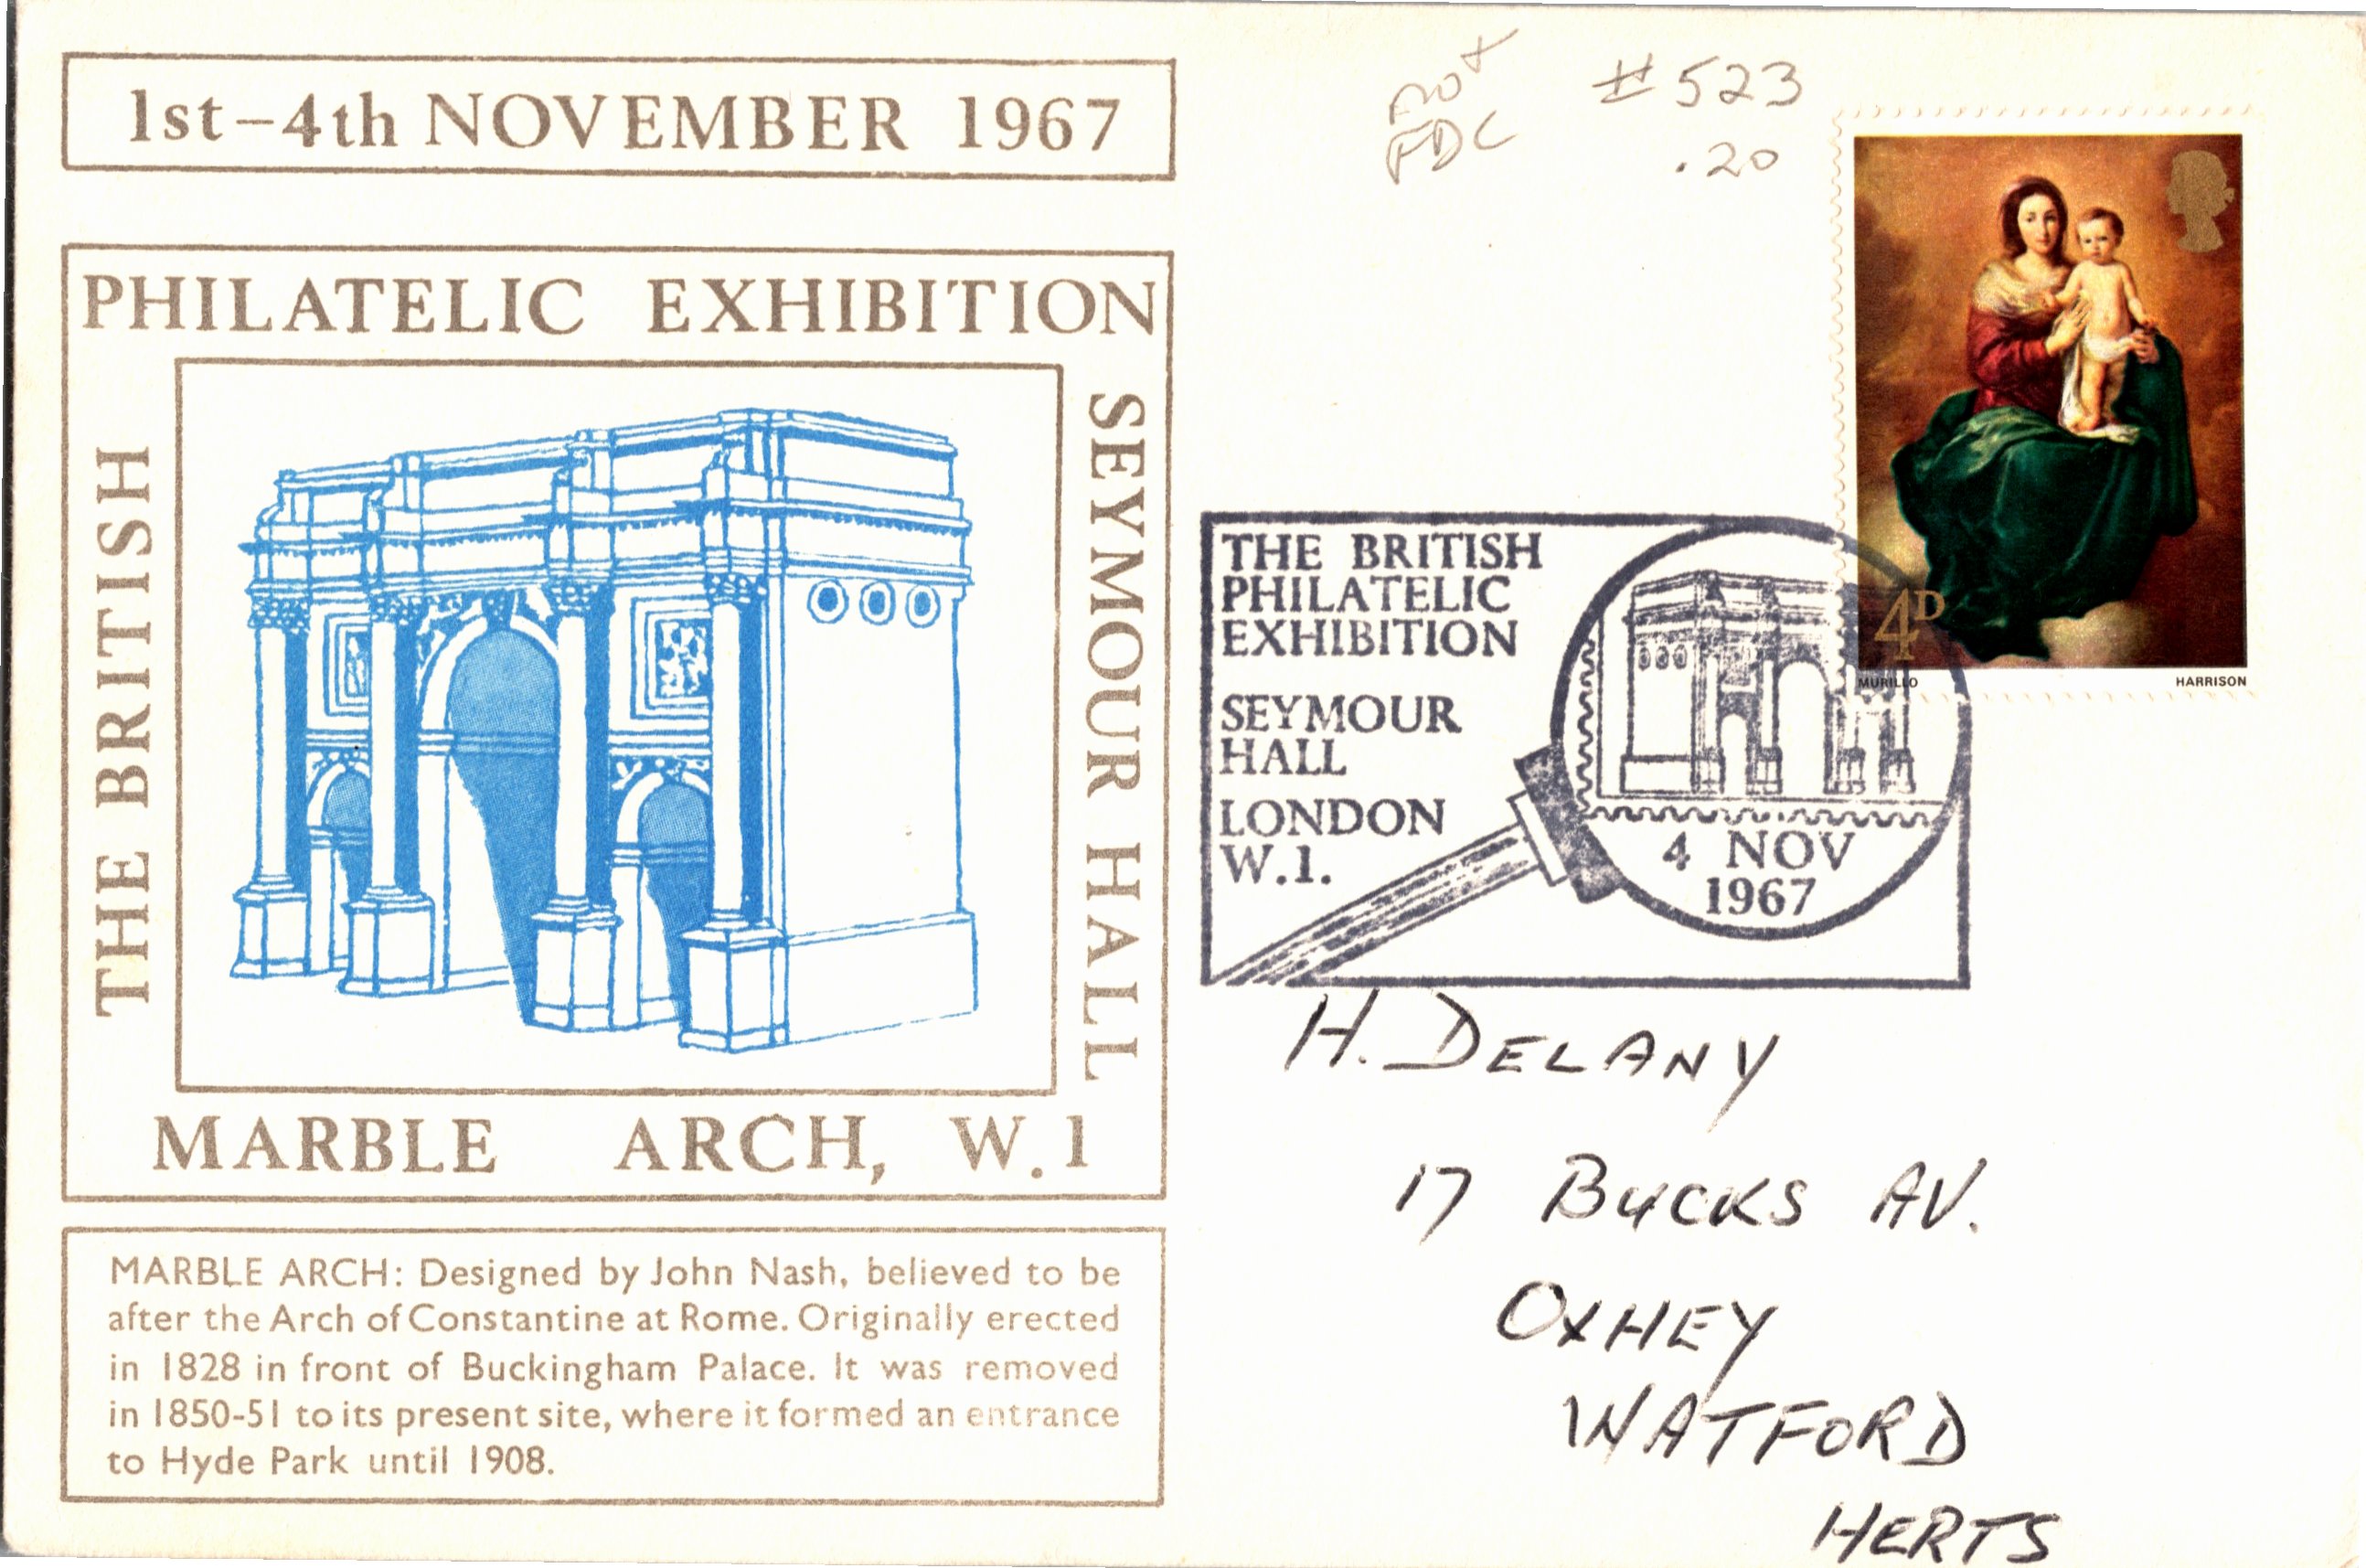 1st-4th NOVEMBER 1967
PHILATELIC EXHIBITION
THE BRITISH
SEYMOUR HALL
MARBLE ARCH, W.1
MARBLE ARCH: Designed by John Nash, believed to be
after the Arch of Constantine at Rome. Originally erected
in 1828 in front of Buckingham Palace. It was removed
in 1850-51 to its present site, where it formed an entrance
to Hyde Park until 1908.
not
FDC
#523
.20
4D
MURILLO HARRISON
THE BRITISH
PHILATELIC
EXHIBITION
SEYMOUR
HALL
LONDON
W.1.
4 NOV
1967
H. DELANY
17 BUCKS AV.
OXHEY
WATFORD
HERTS